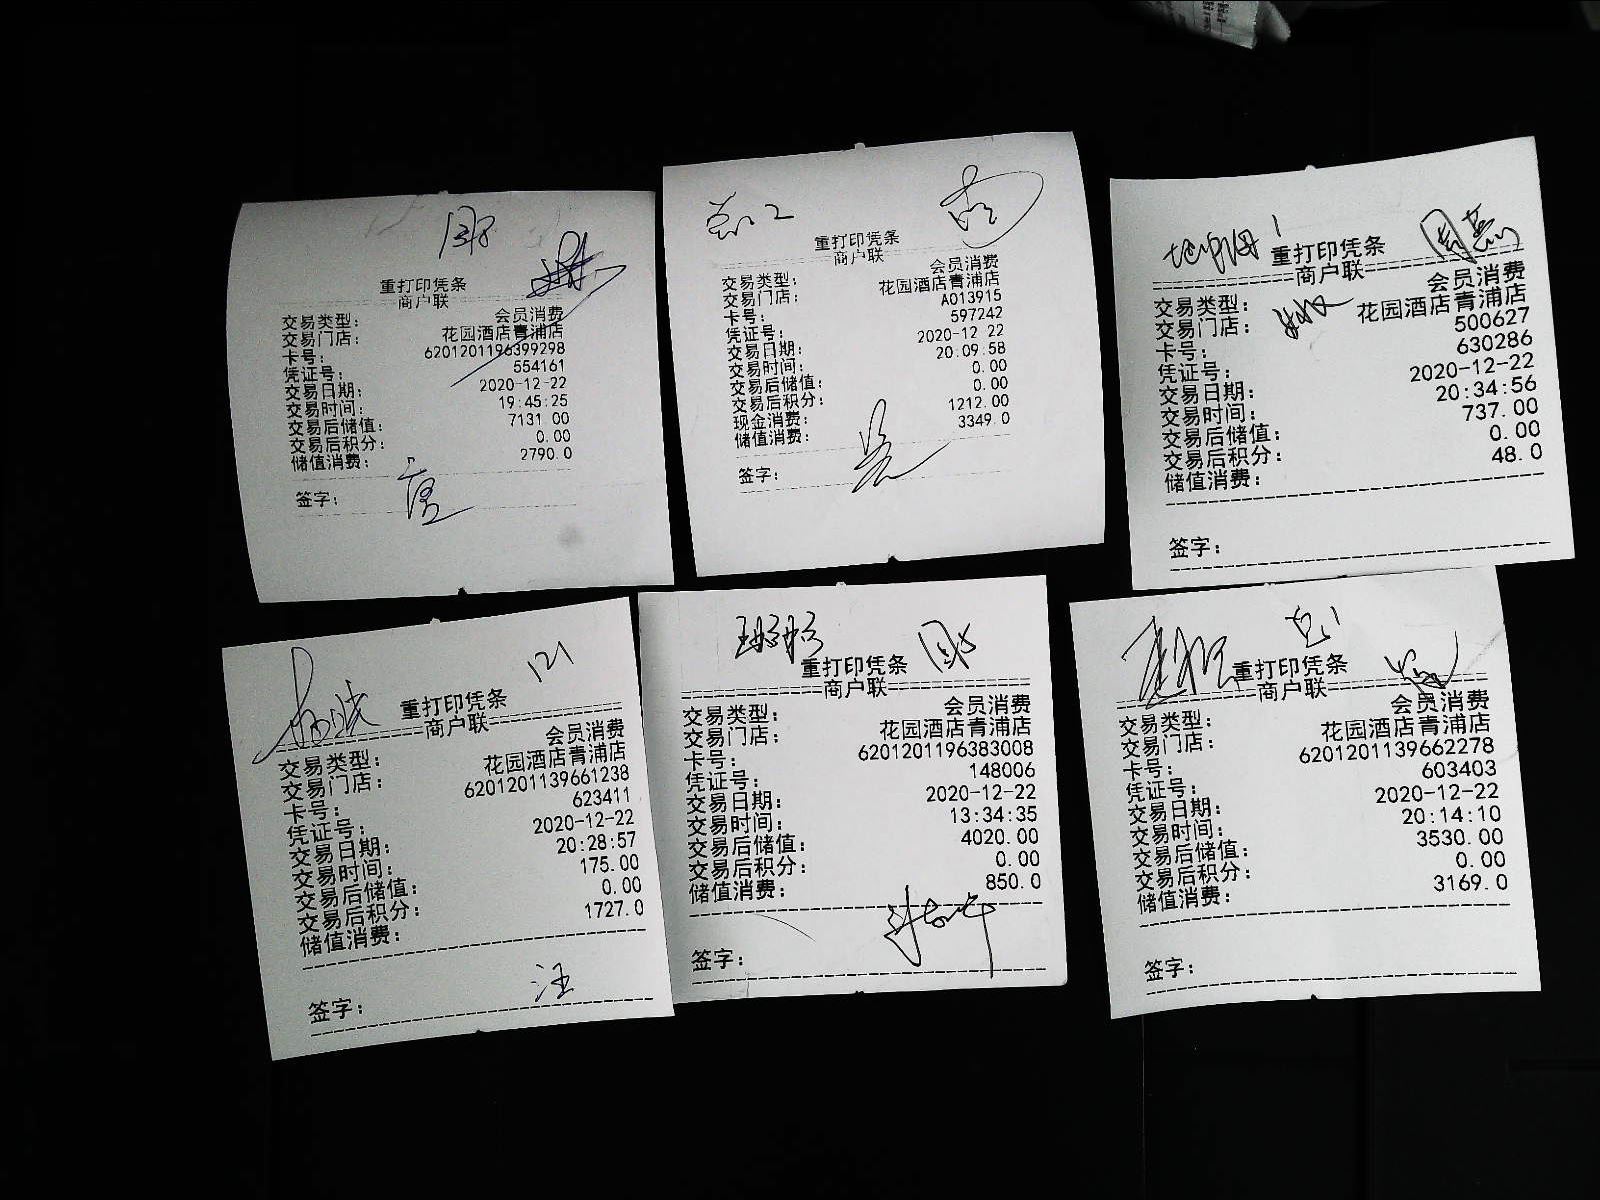 138
重打印凭条
商户联
交易类型： 会员消费
交易门店： 花园酒店青浦店
卡号： 6201201196399298
凭证号： 554161
交易日期： 2020-12-22
交易时间： 19:45:25
交易后储值： 7131.00
交易后积分： 0.00
储值消费： 2790.0
签字：
重打印凭条
商户联
交易类型： 会员消费
交易门店： 花园酒店青浦店
卡号： A013915
凭证号： 597242
交易日期： 2020-12-22
交易时间： 20:09:58
交易后储值： 0.00
交易后积分： 0.00
现金消费： 1212.00
储值消费： 3349.0
签字： 吴
重打印凭条
商户联
交易类型： 会员消费
交易门店： 花园酒店青浦店
卡号： 500627
凭证号： 630286
交易日期： 2020-12-22
交易时间： 20:34:56
交易后储值： 737.00
交易后积分： 0.00
储值消费： 48.0
签字：
121
重打印凭条
商户联
交易类型： 会员消费
交易门店： 花园酒店青浦店
卡号： 6201201139661238
凭证号： 623411
交易日期： 2020-12-22
交易时间： 20:28:57
交易后储值： 175.00
交易后积分： 0.00
储值消费： 1727.0
签字： 汪
重打印凭条
商户联
交易类型： 会员消费
交易门店： 花园酒店青浦店
卡号： 6201201196383008
凭证号： 148006
交易日期： 2020-12-22
交易时间： 13:34:35
交易后储值： 4020.00
交易后积分： 0.00
储值消费： 850.0
签字：
重打印凭条
商户联
交易类型： 会员消费
交易门店： 花园酒店青浦店
卡号： 6201201139662278
凭证号： 603403
交易日期： 2020-12-22
交易时间： 20:14:10
交易后储值： 3530.00
交易后积分： 0.00
储值消费： 3169.0
签字：